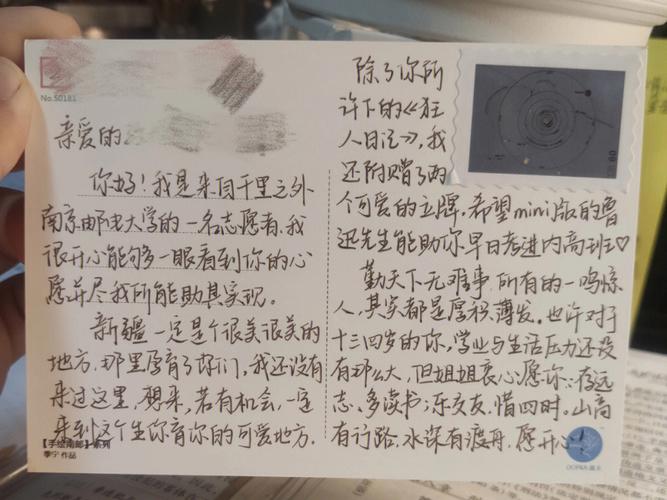 No.50181
亲爱的
你好！我是来自千里之外
南京邮电大学的一名志愿者，我
很开心能够多一眼看到你的心
愿并尽我所能助其实现。
新疆一定是个很美很美的
地方，那里孕育了你们，我还没有
来过这里，想来，若有机会，一定
来到这个生你育你的可爱地方.
【手绘南邮】系列
季宁 作品
除了你所
许下的《狂
人日记》，我
还附赠了两
个可爱的立牌，希望mini版的鲁
迅先生能助你早日考进内高班♡
勤天下无难事，所有的一鸣惊
人，其实都是厚积薄发。也许对于
十三四岁的你，学业与生活压力还没
有那么大，但姐姐衷心愿你：存远
志、多读书；乐交友，惜四时。山高
有行路，水深有渡舟，愿开心！
80